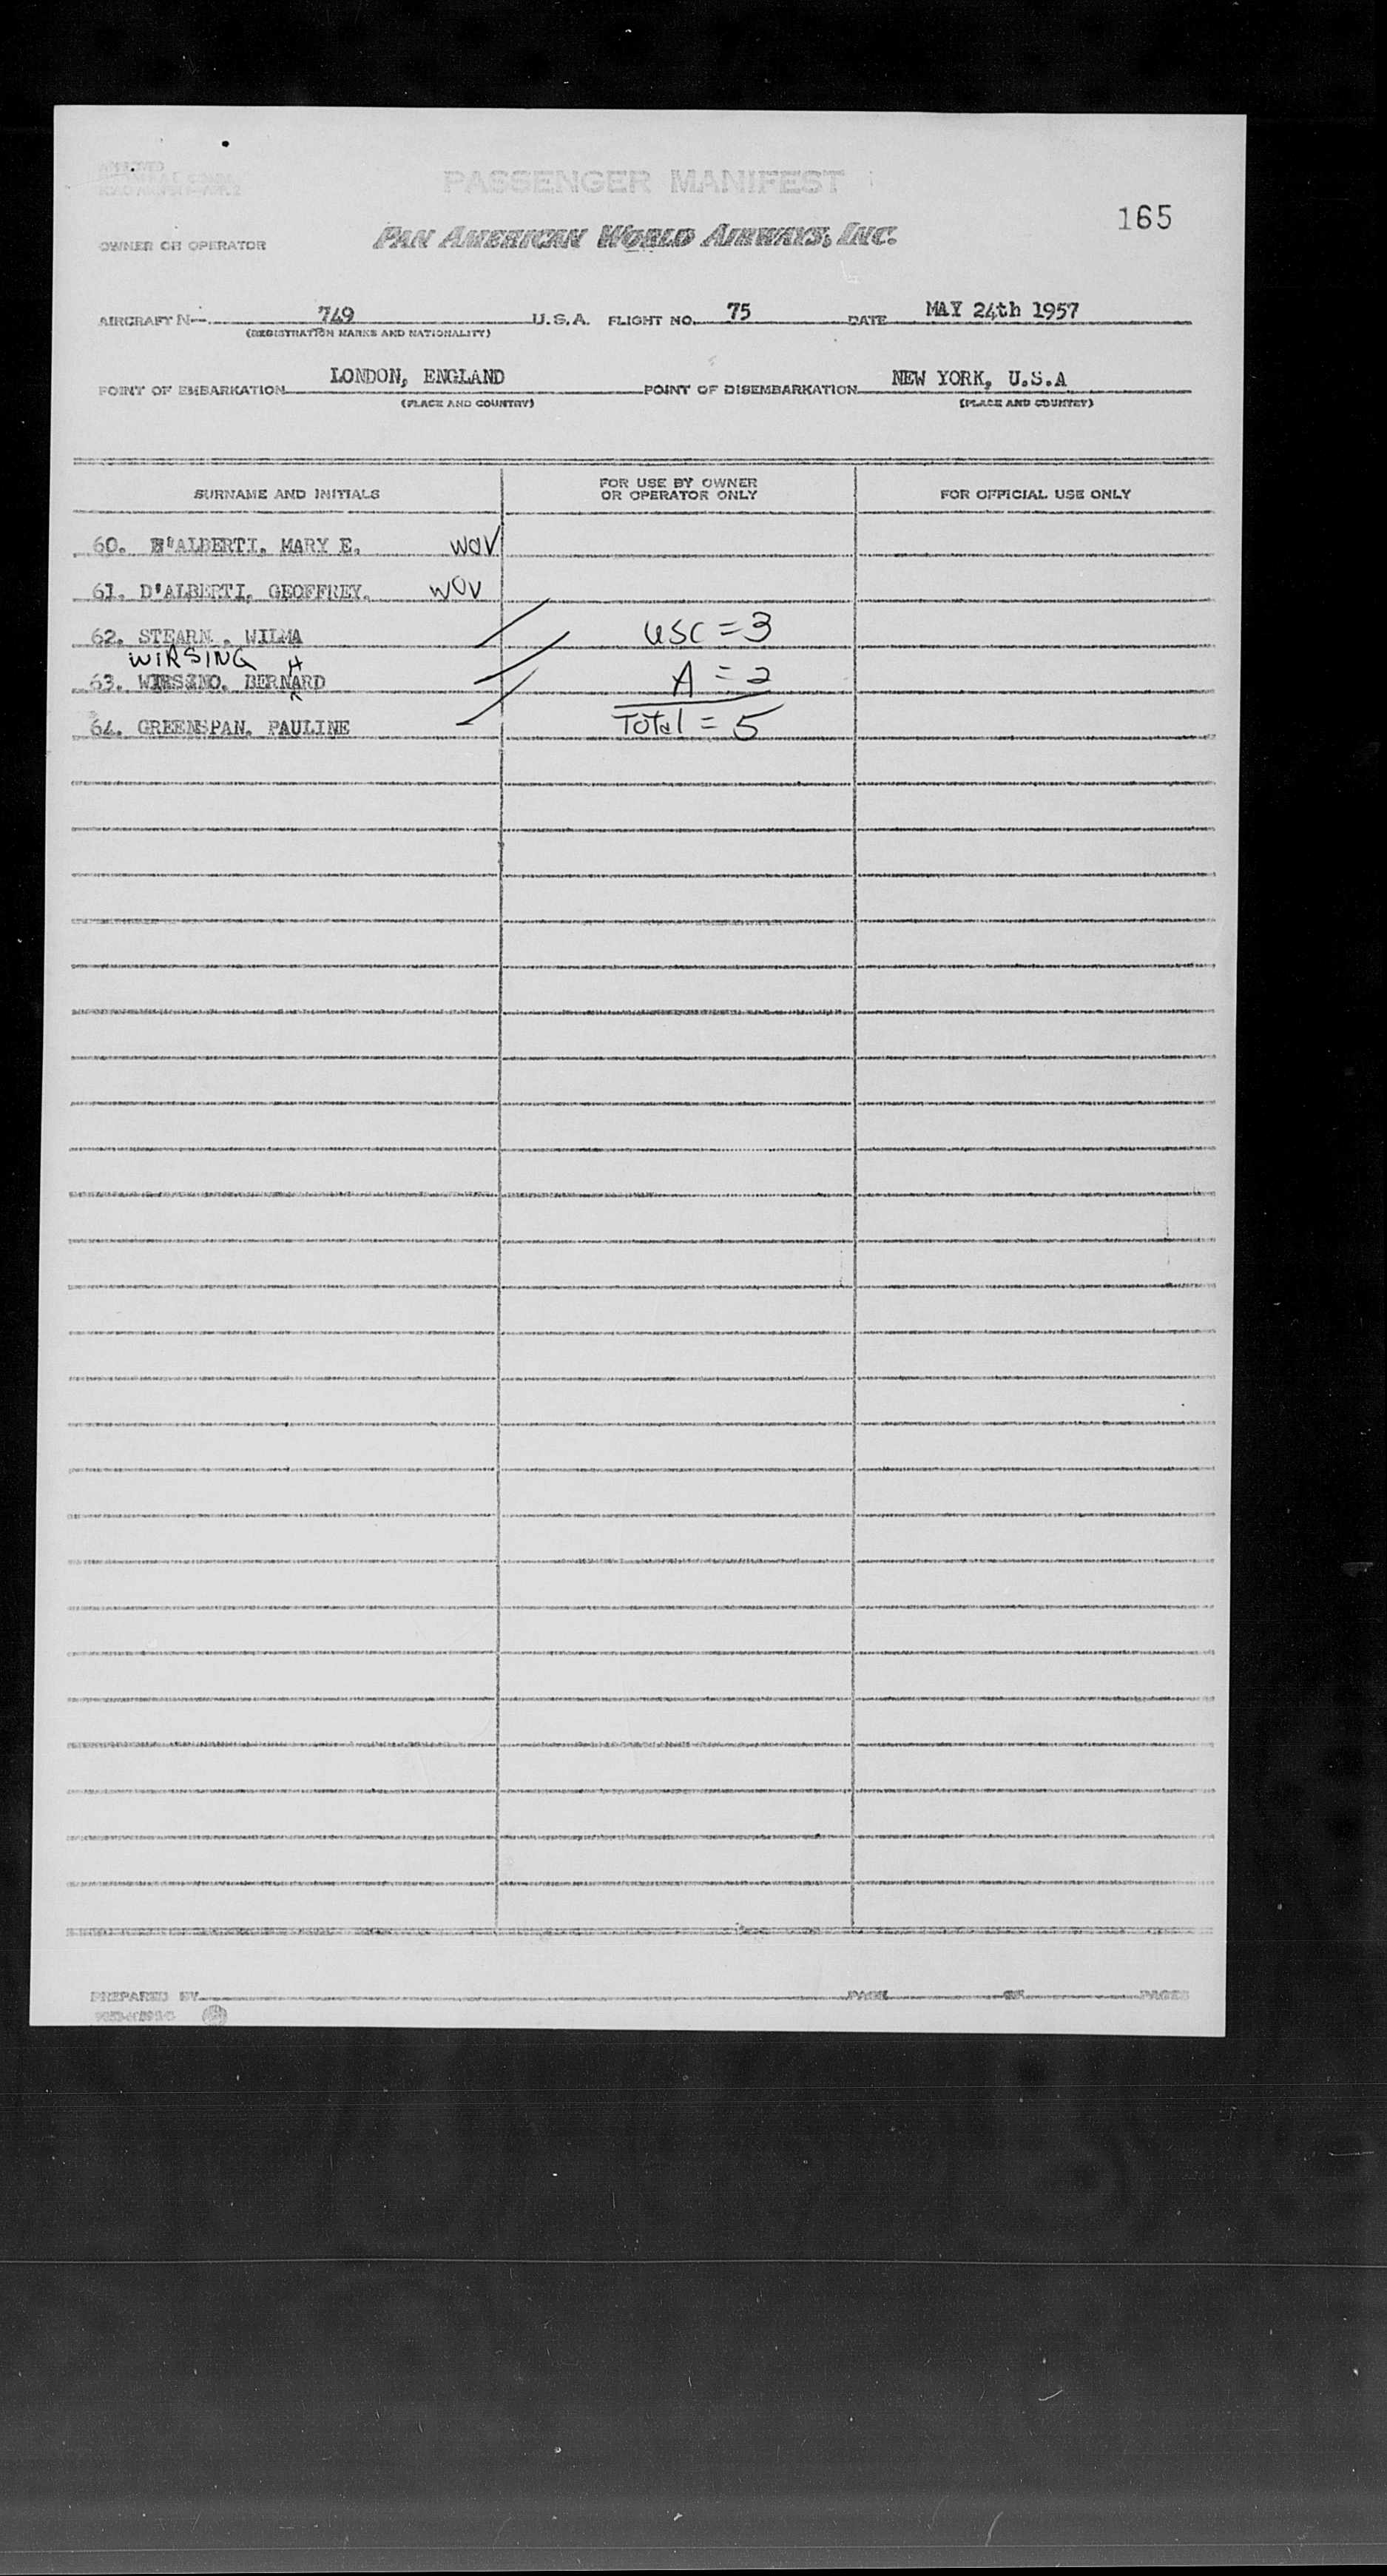 APPROVED
PASSENGER MANIFEST
165
OWNER OR OPERATOR PAN AMERICAN WORLD AIRWAYS, INC.
AIRCRAFT N- 749 U.S.A. FLIGHT NO. 75 DATE MAY 24th 1957
(REGISTRATION MARKS AND NATIONALITY)
POINT OF EMBARKATION LONDON, ENGLAND POINT OF DISEMBARKATION NEW YORK, U.S.A
(PLACE AND COUNTRY) (PLACE AND COUNTRY)
SURNAME AND INITIALS FOR USE BY OWNER OR OPERATOR ONLY FOR OFFICIAL USE ONLY
60. D'ALBERTI, MARY E. WOV
61. D'ALBERTI, GEOFFREY. WOV
62. STEARN . WILMA USC = 3
WIRSING H
63. WIRSINO. BERNARD A = 2
64. GREENSPAN. PAULINE Total = 5
PREPARED BY PAGE OF PAGES